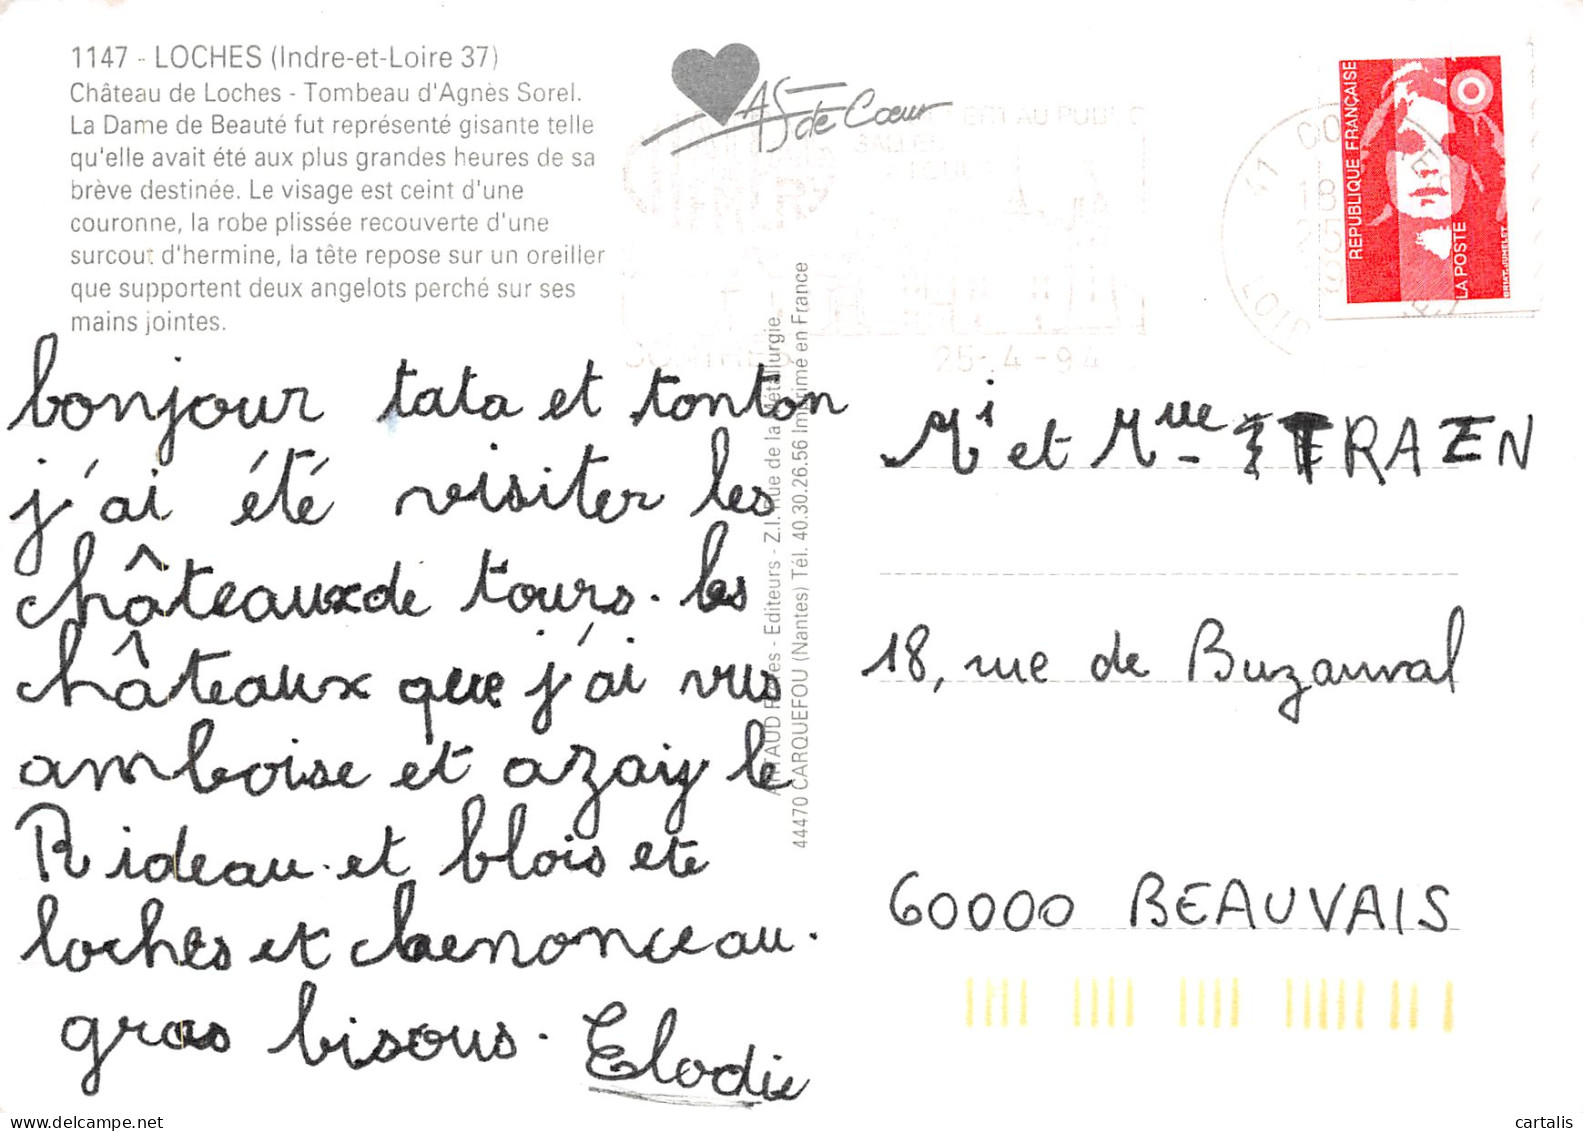 1147 - LOCHES (Indre-et-Loire 37)
Château de Loches - Tombeau d'Agnès Sorel.
La Dame de Beauté fut représenté gisante telle
qu'elle avait été aux plus grandes heures de sa
brève destinée. Le visage est ceint d'une
couronne, la robe plissée recouverte d'une
surcout d'hermine, la tête repose sur un oreiller
que supportent deux angelots perché sur ses
mains jointes.
bonjour tata et tonton
j'ai été visiter les
châteaux de tours. les
châteaux que j'ai vus
amboise et azay le
Rideau. et blois ete
loches et chenonceau.
gros bisous. Elodie
AS de Cœur
ERT AU PUBLIC
25-4-94
ARTAUD Frères - Editeurs - Z.I. Rue de la Métallurgie
44470 CARQUEFOU (Nantes) Tél. 40.30.26.56 Imprimé en France
REPUBLIQUE FRANÇAISE
LA POSTE
BRIAT-JUMELET
41
LOIR
18
25
et
18, rue de Buzanval
60000 BEAUVAIS
cartalis